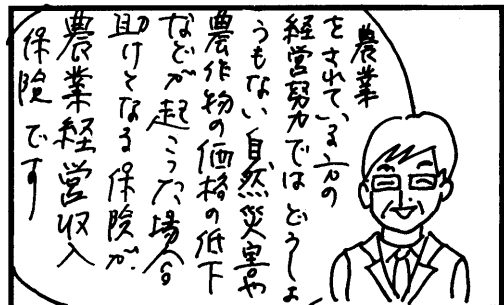 農業
をされている方の
経営努力ではどうしよ
うもない自然災害や
農作物の価格の低下
などが起こった場合
助けとなる保険が、
農業経営収入
保険です